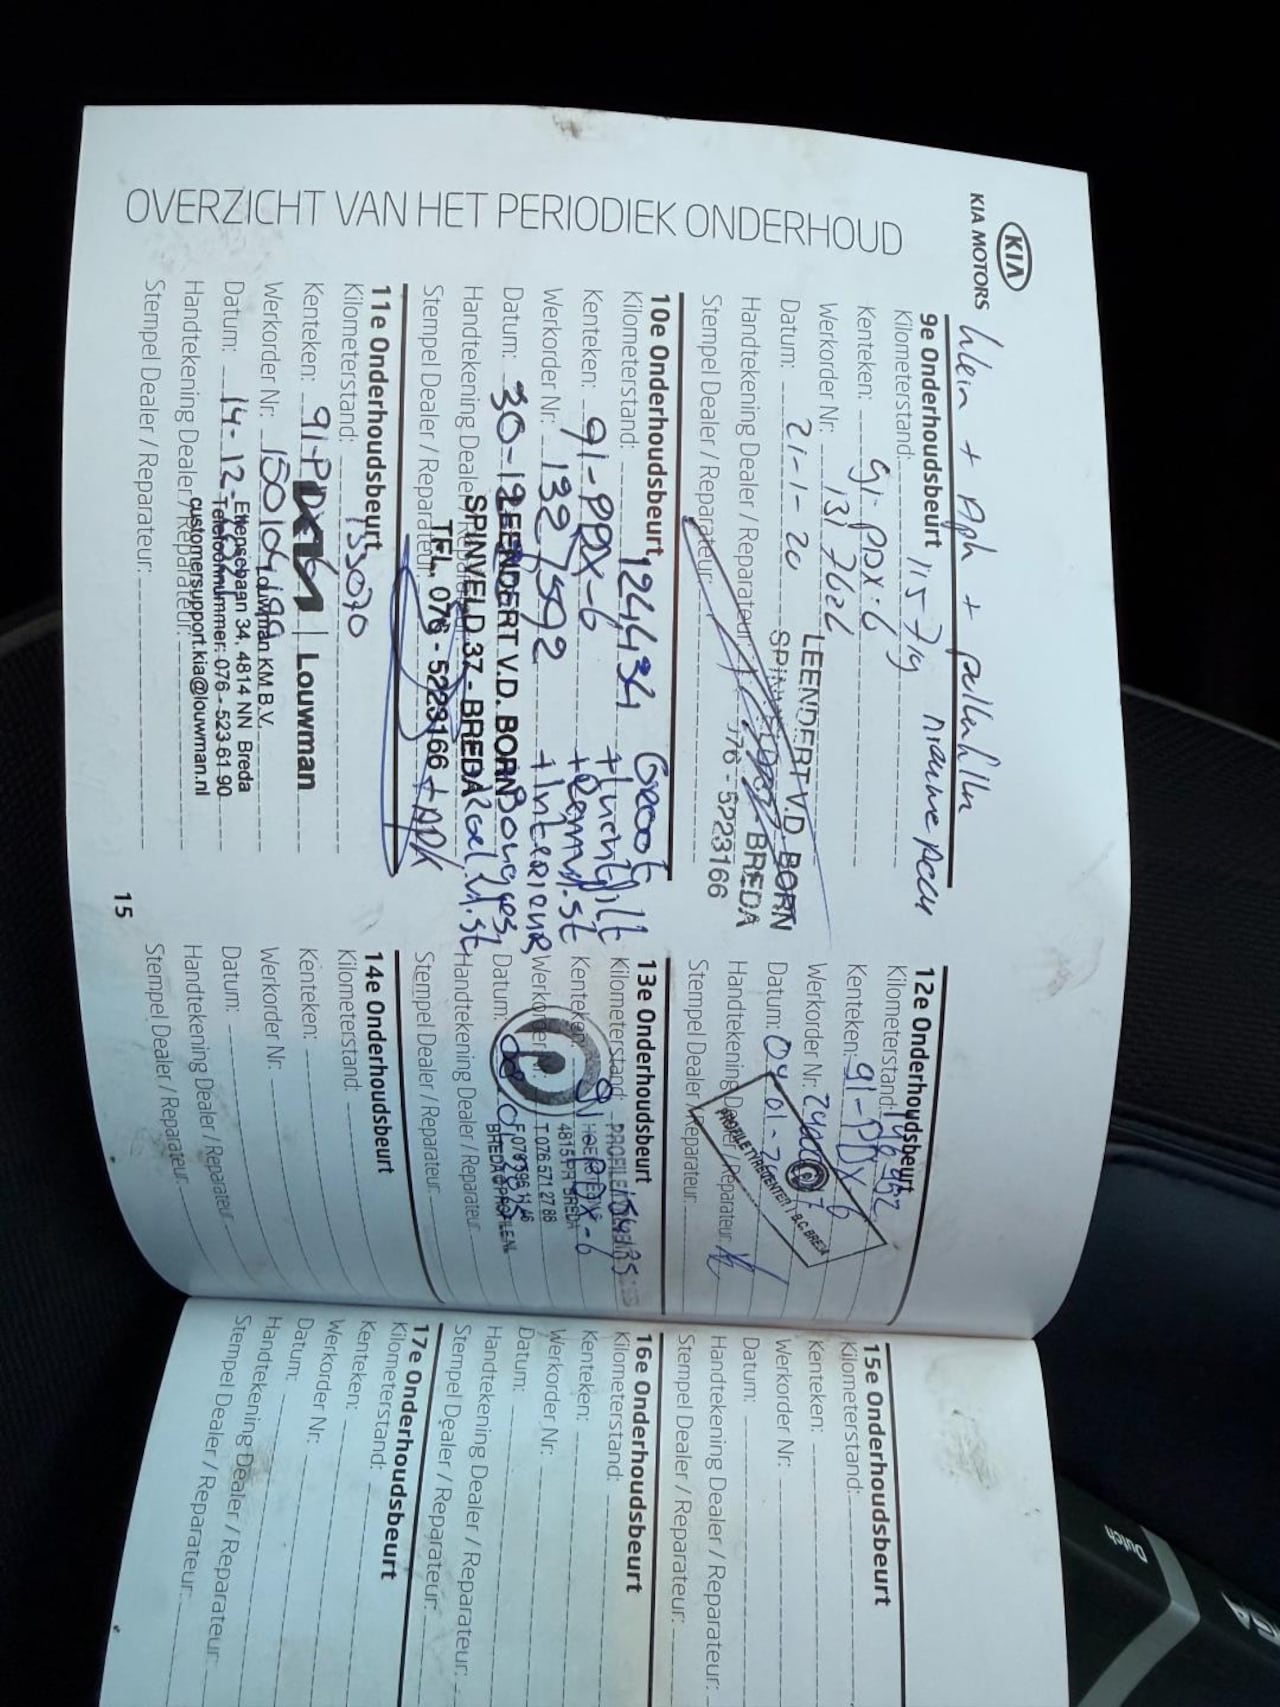 KIA
KIA MOTORS
OVERZICHT VAN HET PERIODIEK ONDERHOUD
klein + Apk +
9e Onderhoudsbeurt
Kilometerstand: 115-719
Kenteken: 91-PDX-6
Werkorder Nr: 1317626
Datum: 21-1-20
Handtekening Dealer / Reparateur:
Stempel Dealer / Reparateur:
LEENDERT V.D. BORN
BREDA
076 - 5223166
10e Onderhoudsbeurt
Kilometerstand: 124434 Groot
Kenteken: 91-PDX-6
Werkorder Nr: 1327592 + Interieur
Datum: 30-12
Handtekening Dealer / Reparateur:
Stempel Dealer / Reparateur: + APK
LEENDERT V.D. BORN
SPINVELD 37 - BREDA
TEL. 076 - 5223166
11e Onderhoudsbeurt
Kilometerstand: 133070
Kenteken: 91-PDX-6
Werkorder Nr:
Datum: 14-12-
Handtekening Dealer / Reparateur:
Stempel Dealer / Reparateur:
Louwman
Louwman KM B.V.
Ettensebaan 34, 4814 NN Breda
Telefoonnummer: 076 - 523 61 90
customersupport.kia@louwman.nl
15
12e Onderhoudsbeurt
Kilometerstand:
Kenteken: 91-PDX-6
Werkorder Nr:
Datum: 04-01-
Handtekening Dealer / Reparateur:
Stempel Dealer / Reparateur:
BREDA
13e Onderhoudsbeurt
Kilometerstand:
Kenteken: 91-PDX-6
Werkorder Nr:
Datum:
Handtekening Dealer / Reparateur:
Stempel Dealer / Reparateur:
4815 PR BREDA
T. 076 571 27 88
BREDA@PROFILE.NL
14e Onderhoudsbeurt
Kilometerstand:
Kenteken:
Werkorder Nr:
Datum:
Handtekening Dealer / Reparateur:
Stempel Dealer / Reparateur:
15e Onderhoudsbeurt
Kilometerstand:
Kenteken:
Werkorder Nr:
Datum:
Handtekening Dealer / Reparateur:
Stempel Dealer / Reparateur:
16e Onderhoudsbeurt
Kilometerstand:
Kenteken:
Werkorder Nr:
Datum:
Handtekening Dealer / Reparateur:
Stempel Dealer / Reparateur:
17e Onderhoudsbeurt
Kilometerstand:
Kenteken:
Werkorder Nr:
Datum:
Handtekening Dealer / Reparateur:
Stempel Dealer / Reparateur:
Dutch